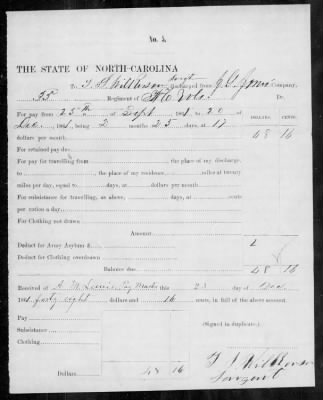 No. 5.
THE STATE OF NORTH-CAROLINA
To T. J. Wilkerson Sergt Discharged from Company,
35 Regiment of N C Vols. Dr.
For pay from 25th of Sept 1861 to 20 DOLLARS. CENTS.
1861, being 2 months 25 days, at 17
dollars per month. 48 16
For retained pay due
For pay for travelling from the place of my discharge,
to the place of my residence miles at twenty
miles per day, equal to days, at dollars per month.
For subsistance for travelling, as above, days, at cents
per ration a day
For Clothing not drawn
Amount
Deduct for Army Asylum $
Deduct for Clothing overdrawn
Balance due 48 16
Received of A. M. Lewis, Pay Master this 23 day of
186 forty eight dollars and 16 cents, in full of the above account.
Pay
Subsistance
Clothing
(Signed in duplicate.)
Dollars 48 16
T J Wilkerson
Sargent